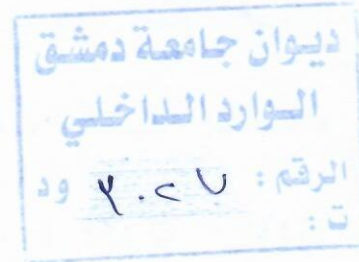 ديوان جامعة دمشق
الوارد الداخلي
الرقم : ٣٠٢٧ ود
ت :